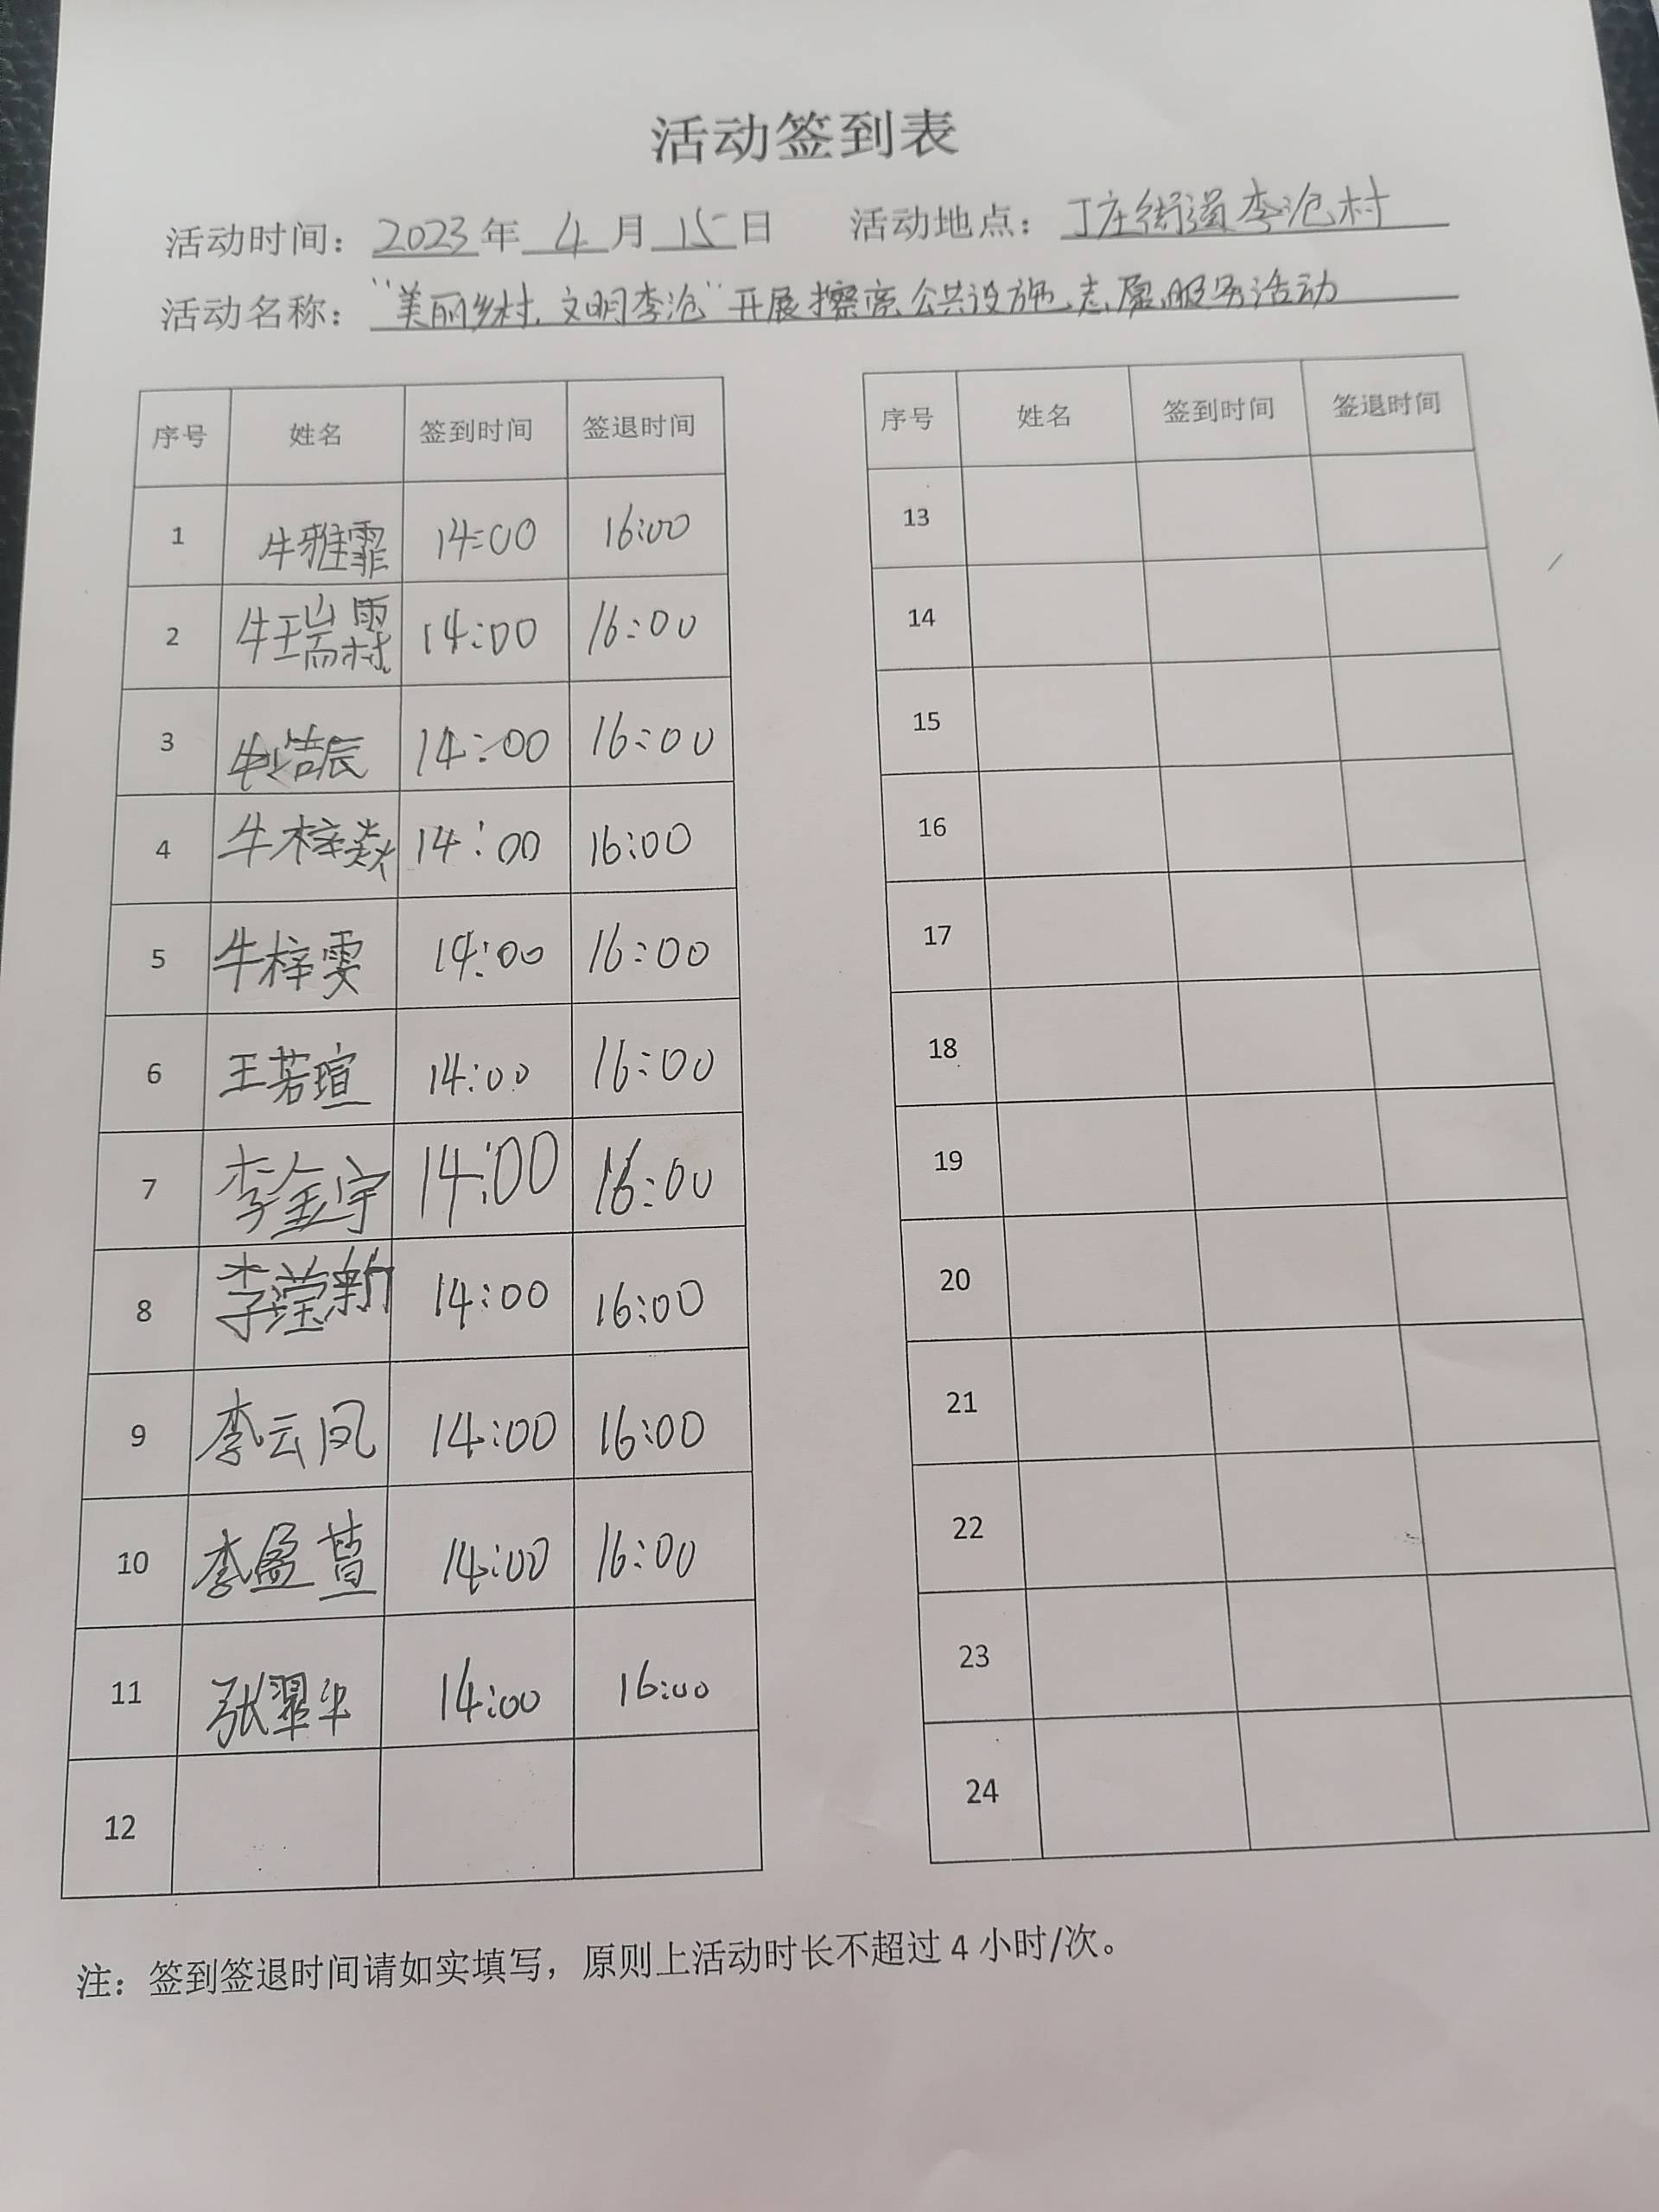 活动签到表
活动时间：2023年4月15日 活动地点：丁庄街道李沧村
活动名称："美丽乡村，文明李沧"开展擦亮公共设施志愿服务活动
序号 姓名 签到时间 签退时间
1 牛雅霏 14:00 16:00
2 牛瑞霖 14:00 16:00
3 14:00 16:00
4 牛梓焱 14:00 16:00
5 牛梓雯 14:00 16:00
6 王若瑄 14:00 16:00
7 李金宇 14:00 16:00
8 李滢新 14:00 16:00
9 李云凤 14:00 16:00
10 李盈萱 14:00 16:00
11 张翠华 14:00 16:00
12
序号 姓名 签到时间 签退时间
13
14
15
16
17
18
19
20
21
22
23
24
注：签到签退时间请如实填写，原则上活动时长不超过4小时/次。